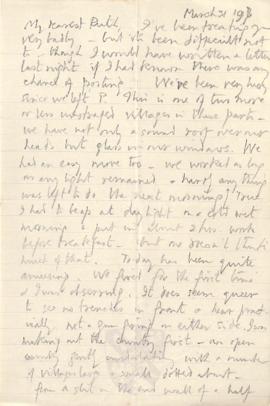 March 21 19
My dearest Ruth, I've been treating you
very badly – but it's been difficult not
to – though I would have written a letter
last night if I had known there was any
chance of posting. We've been very lucky
since we left P. This is one of two more
or less undamaged villages in these parts –
we have not only a sound roof over our
heads but glass in our windows. We
had an easy move too – we worked as long
as any light remained & hardly anything
was left to do the next morning; true
I had to be up at daylight on a cold wet
morning & put in about 2 hrs. work
before breakfast – but one doesn't think
much of that. To-day has been quite
amusing. We fired for the first time
& I was observing. It does seem queer
to see no trenches in front & hear practi-
cally not a gun firing on either side. I was
making out the country first – an open
country gently undulating with a number
of villages & small dotted about –
from a slit in the end wall of a half